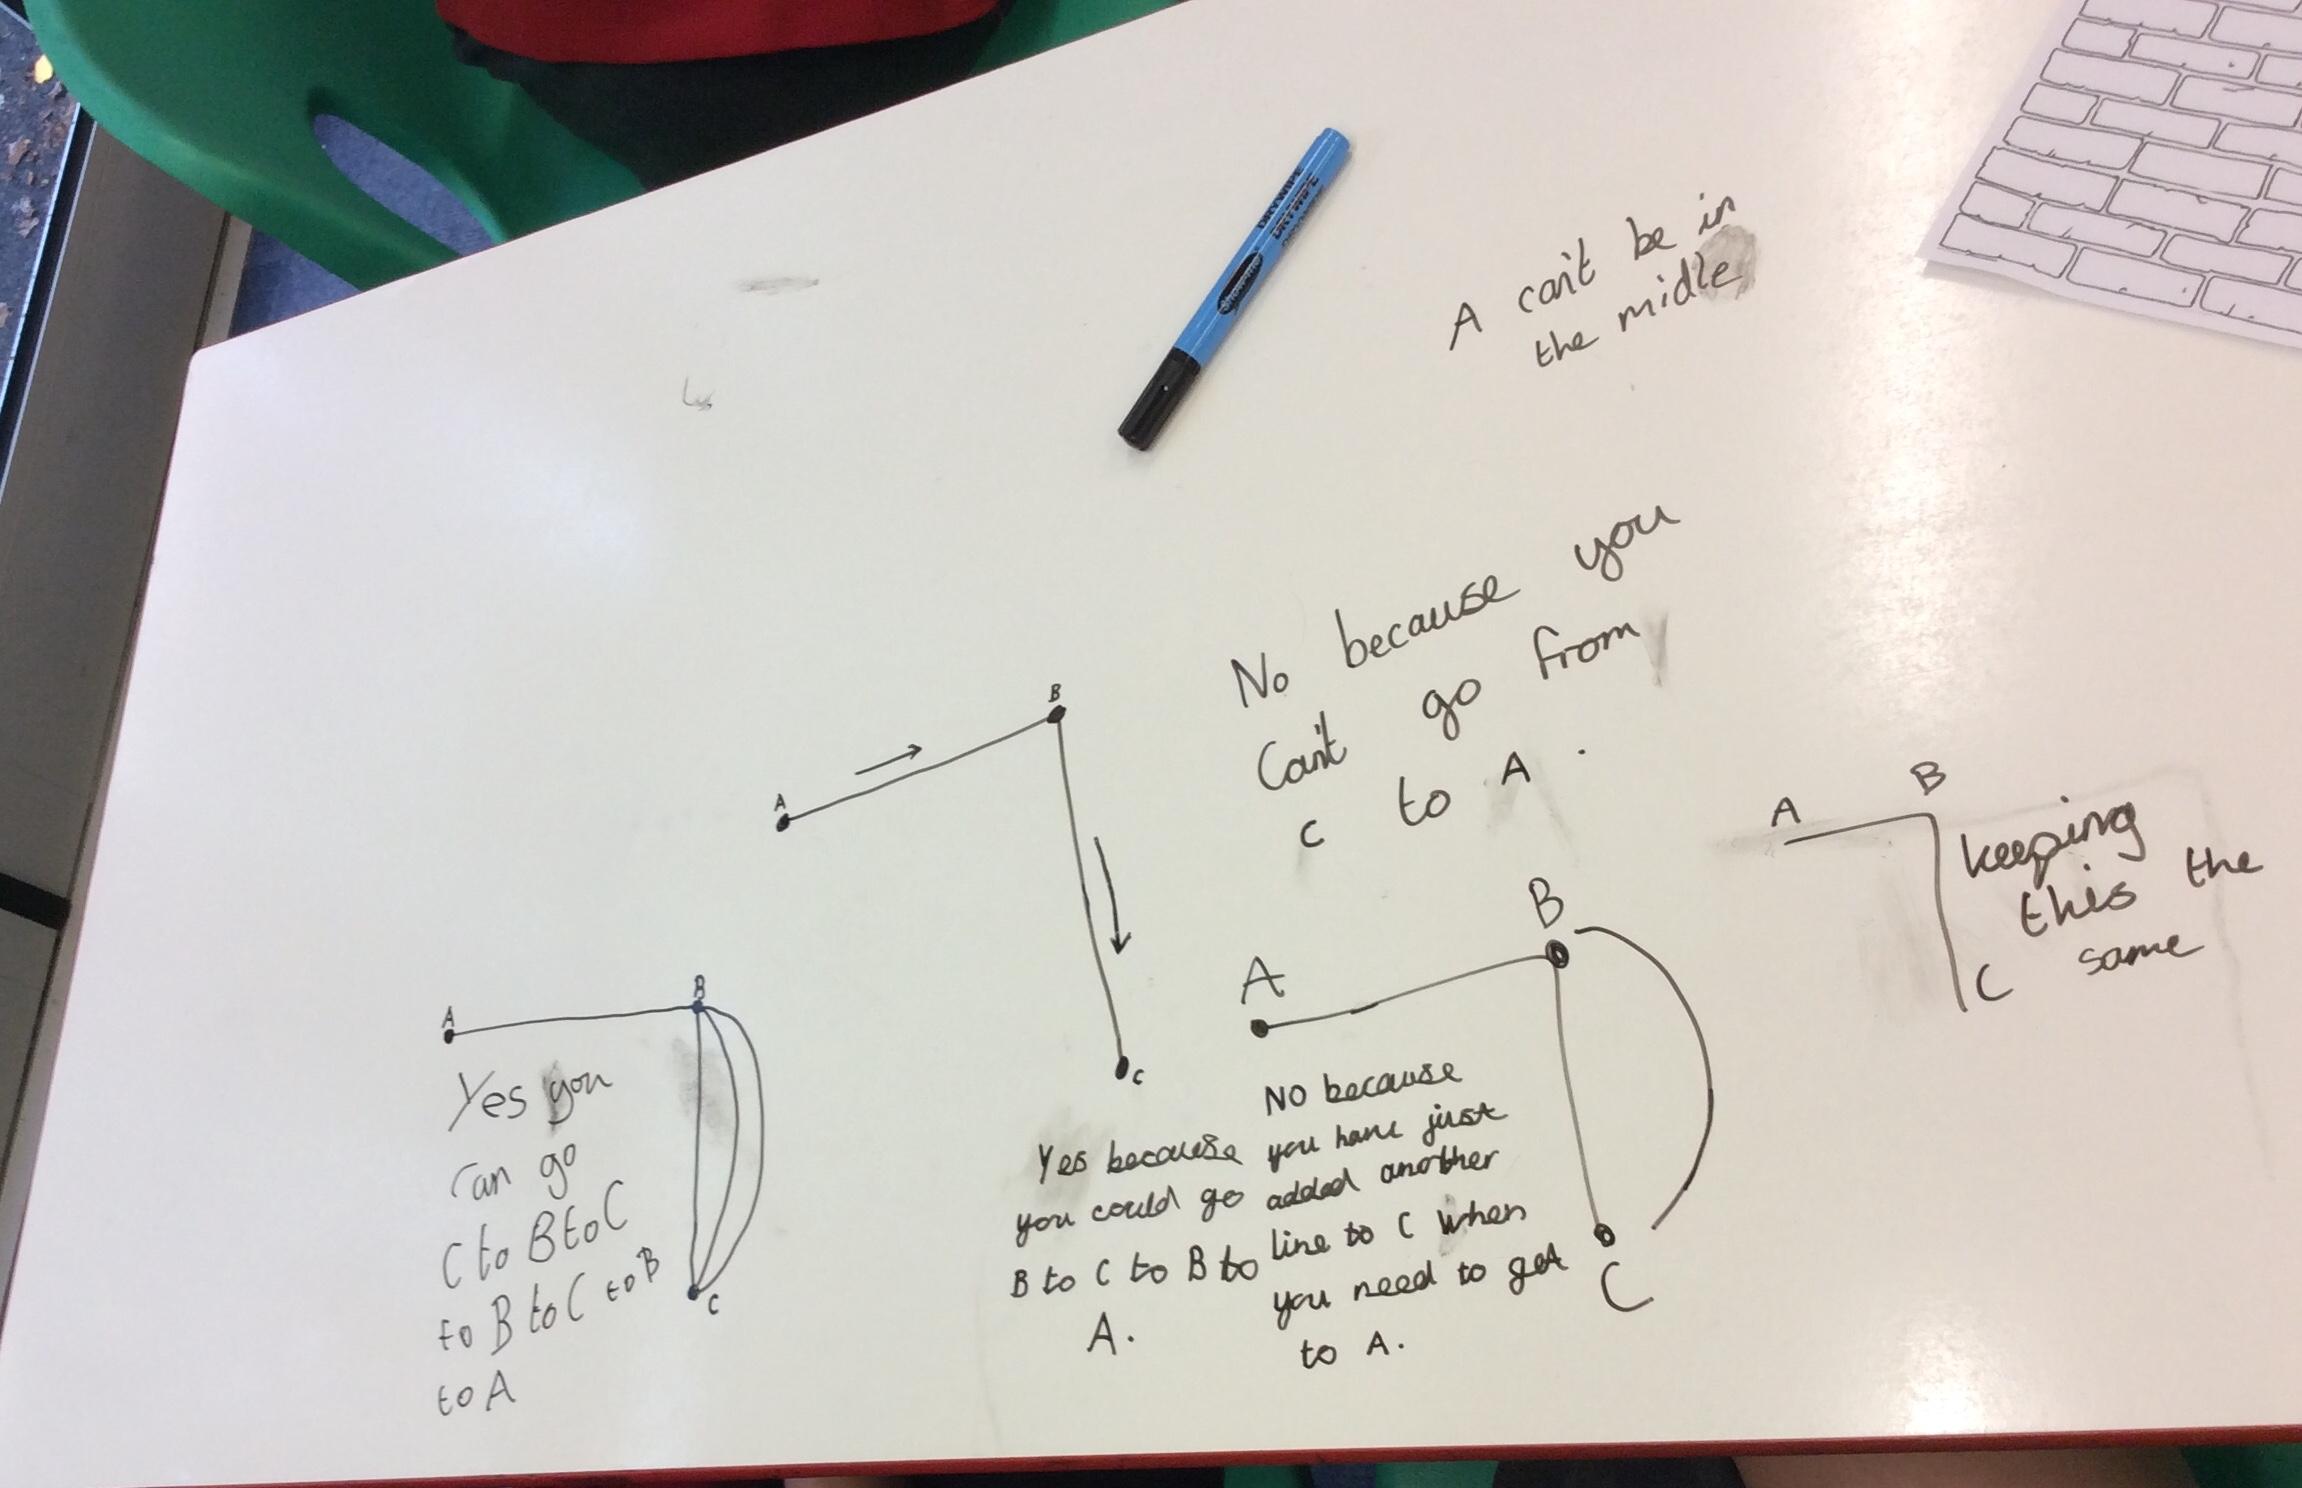 A can't be in
the midle
No because you
Can't go from
C to A.
B
A
C
A B
keeping
this the
same
C
B
A
C
NO because
you have just
added another
line to C when
you need to get
to A.
Yes because
you could go
B to C to B to
A.
A
B
C
Yes you
can go
C to B to C
to B to C to B
to A
DRYWIPE
Show-me